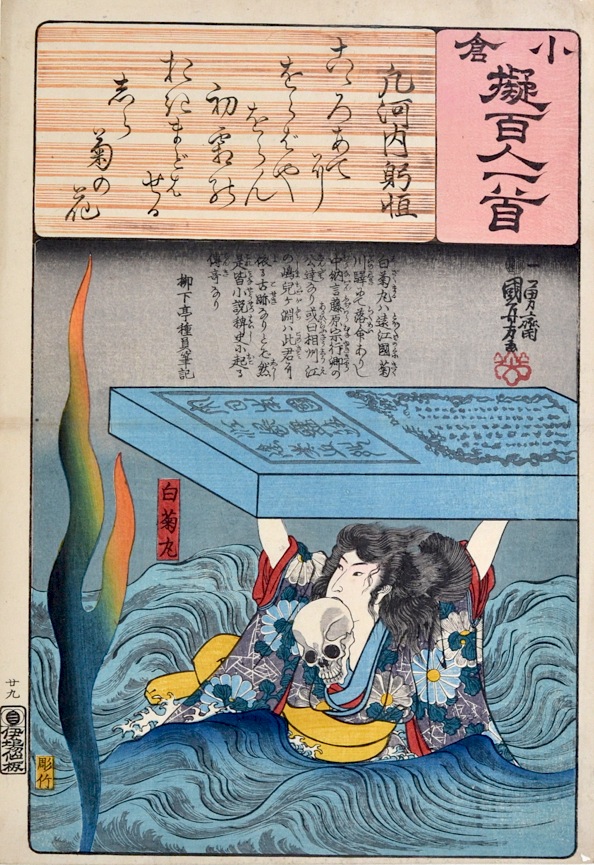 小倉
擬百人一首
凡河内躬恒
こゝろあてに
をらばや
をらん
初霜の
おきまどはせる
しら
菊の
花
一勇齋
國芳画
白菊丸ハ遠江國菊
川驛に落命ありし
中納言藤原宗行卿の
公達なり或曰相州江
の嶋児ヶ淵ハ此君に
依る古跡なりと云然
是皆小説稗史に起る
傳奇なり
柳下亭種員筆記
白菊丸
廿九
伊場仙板
彫竹